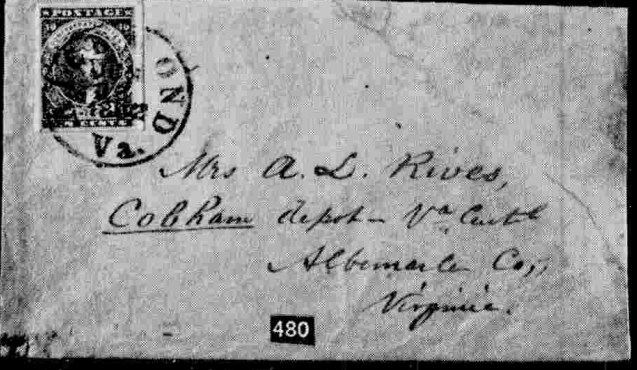 POSTAGE
OND
CENTS
Va.
Mrs A. L. Rives,
Cobham depot - Va Centl
Albemarle Co,
Virginia.
480